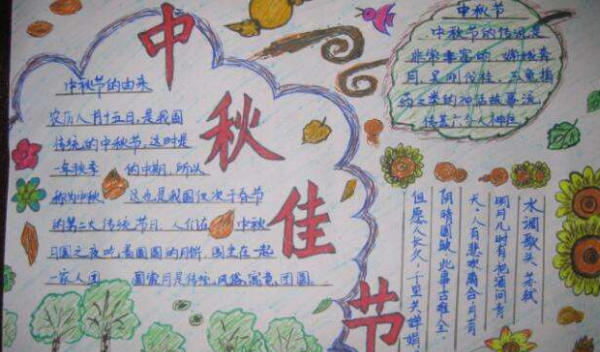 中秋佳节
中秋节的由来
农历八月十五日,是我国
传统的中秋节,这时是
一年秋季 的中期,所以
称为中秋 这也是我国仅次于春节
的第二大传统节日,人们在 中秋
月圆之夜吃着圆圆的月饼,围坐在一起
一家人团 圆赏月是传统风俗,寓意,团圆
中秋节
中秋节的传说是
非常丰富的,嫦娥奔
月,吴刚伐桂,玉兔捣
药之类的神话故事流
传甚广
水调歌头 苏轼
明月几时有把酒问青
天,人有悲欢离合月有
阴晴圆缺,此事古难全
但愿人长久,千里共婵娟